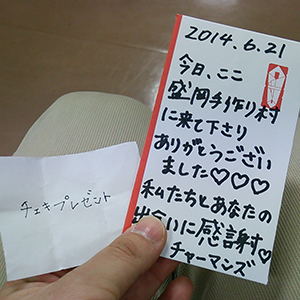 2014.6.21
今日、ここ
盛岡手作り村
に来て下さり
ありがとうござい
ました♡♡♡
私たちとあなたの
出会いに感謝♡
チャーマンズ
チェキプレゼント